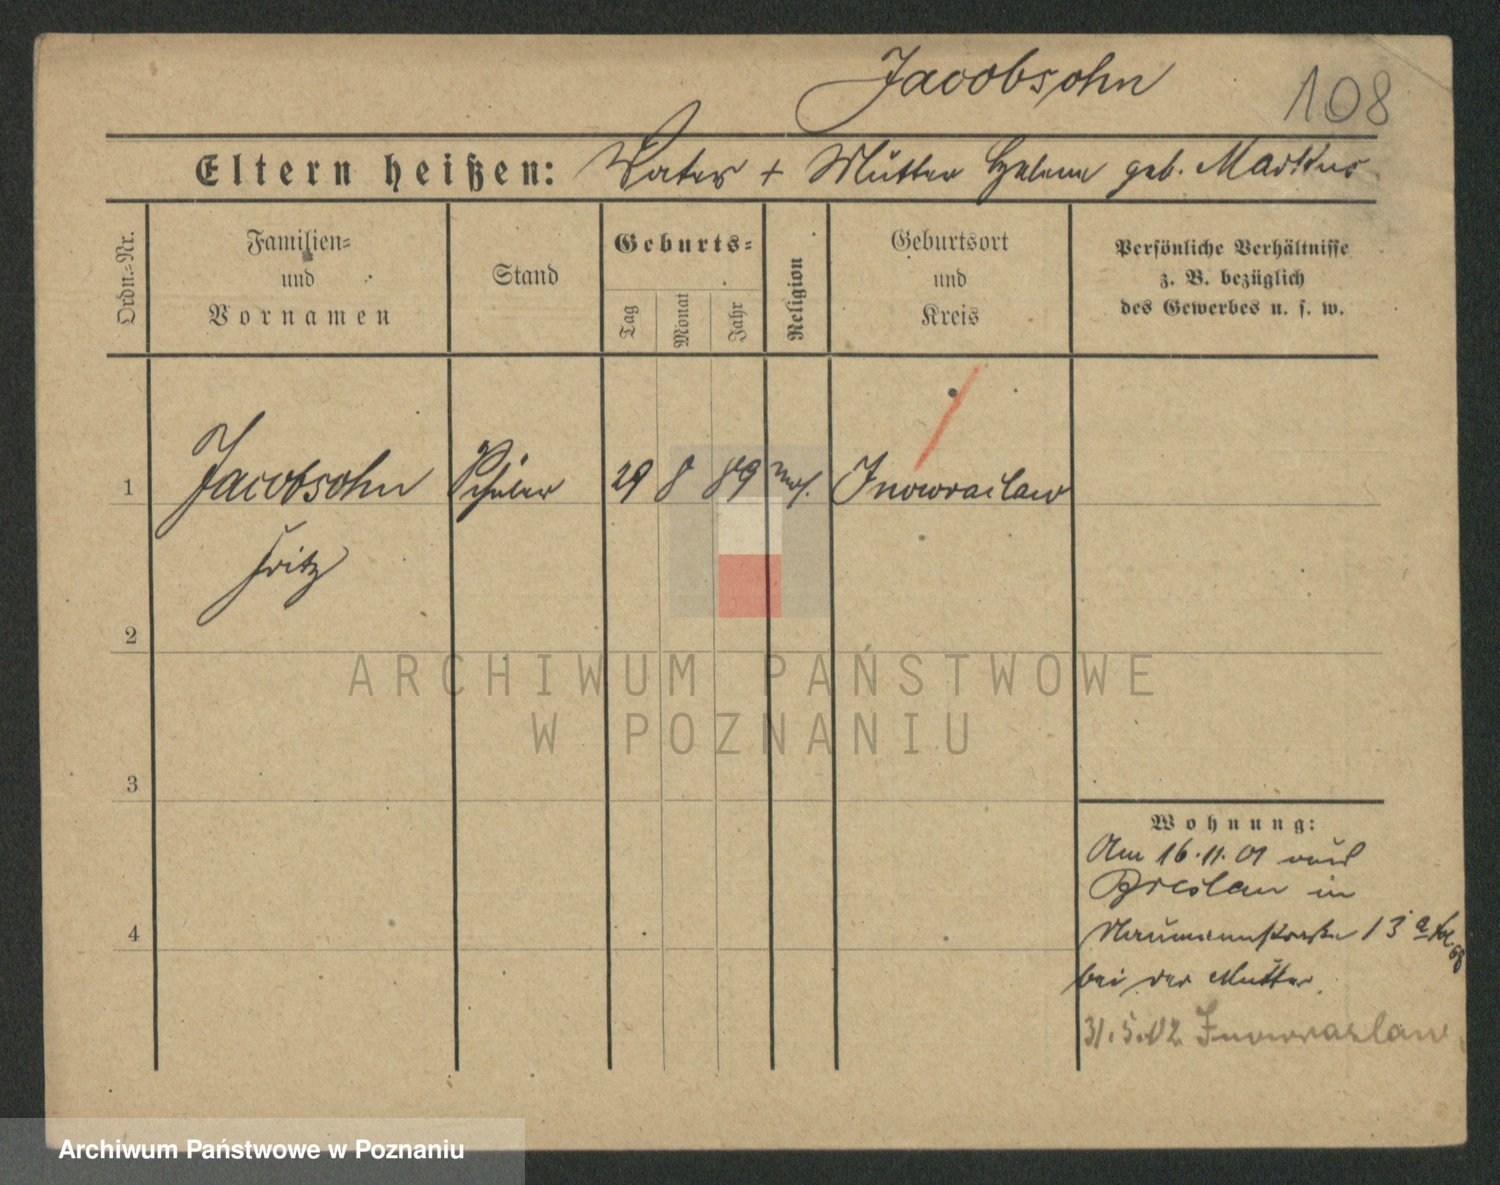 Jacobsohn
108
Eltern heißen: Vater + Mutter Helene geb. Markus
Ordn.-Nr.
Familien-
und
Vornamen
Stand
Geburts-
Tag
Monat
Jahr
Religion
Geburtsort
und
Kreis
Persönliche Verhältnisse
z. B. bezüglich
des Gewerbes u. s. w.
1 Jacobsohn Schüler 29 8 89 mos. Inowrazlaw
Fritz
2
ARCHIWUM PAŃSTWOWE
W POZNANIU
3
Wohnung:
Am 16.11.01 aus
Breslau in
Naumannstraße 13 a
4
bei der Mutter.
31.5.02 Inowrazlaw
Archiwum Państwowe w Poznaniu